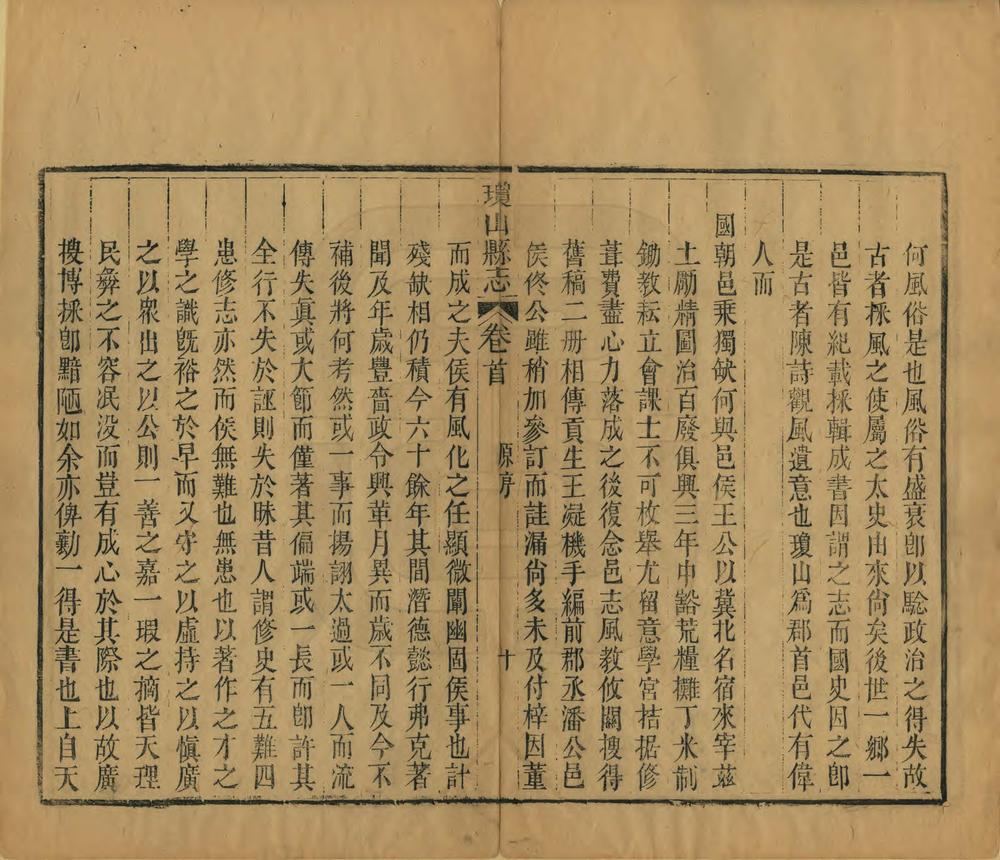 何風俗是也風俗有盛衰卽以騐政治之得失故
古者採風之使屬之太史由來尚矣後世一鄉一
邑皆有紀載採輯成書因謂之志而國史因之卽
是古者陳詩觀風遺意也瓊山爲郡首邑代有偉
人而
國朝邑乘獨缺何與邑侯王公以冀北名宿來宰茲
土勵精圖治百廢俱興三年中豁荒糧攤丁米制
鋤教耘立會課士不可枚舉尤留意學宮拮据修
葺費盡心力落成之後復念邑志風教攸關搜得
舊稿二册相傳貢生王凝機手編前郡丞潘公邑
侯佟公雖稍加參訂而詿漏尚多未及付梓因董
瓊山縣志 卷首 原序 十
而成之夫侯有風化之任顯微闡幽固侯事也計
殘缺相仍積今六十餘年其間潛德懿行弗克著
聞及年歲豐嗇政令興革月異而歲不同及今不
補後將何考然或一事而揚詡太過或一人而流
傳失眞或大節而僅著其偏端或一長而卽許其
全行不失於誣則失於昧昔人謂修史有五難四
患修志亦然而侯無難也無患也以著作之才之
學之識旣裕之於早而又守之以虛持之以愼廣
之以衆出之以公則一善之嘉一瑕之摘皆天理
民彝之不容泯没而豈有成心於其際也以故廣
搜博採卽黯陋如余亦俾勷一得是書也上自天